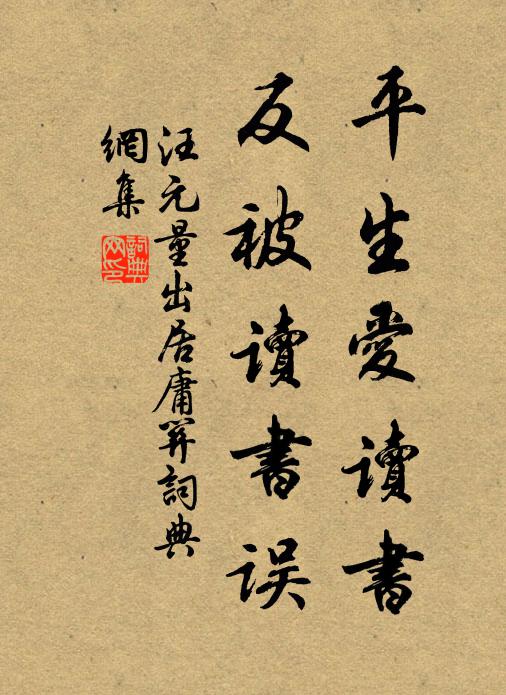 平生愛讀書
反被讀書誤
汪元量出居庸關詞典
網集
詞典網印